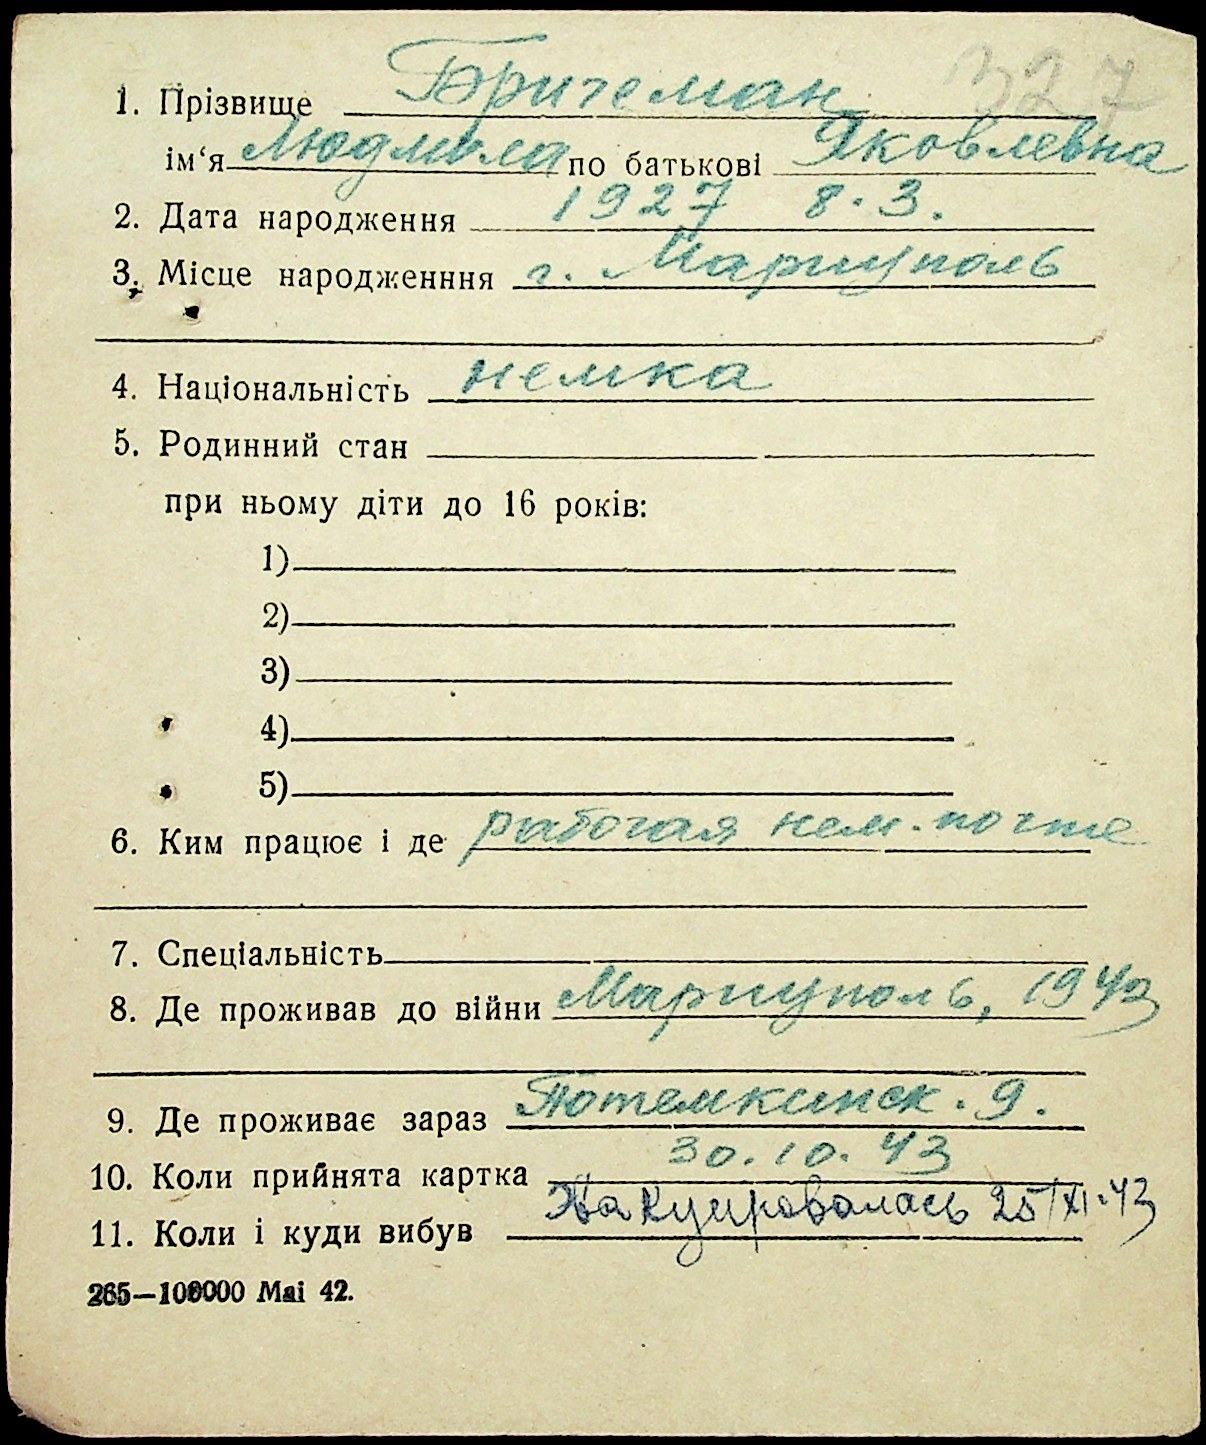 327
1. Прізвище Бригеман
ім‘я Людмила по батькові Яковлевна
2. Дата народження 1927 8.3.
3. Місце народженння г. Мариуполь
4. Національність немка
5. Родинний стан
при ньому діти до 16 років:
1)
2)
3)
4)
5)
6. Ким працює і де рабочая нем. почте
7. Спеціальність
8. Де проживав до війни Мариуполь, 1943
9. Де проживає зараз Потемкинск. 9.
10. Коли прийнята картка 30.10.43
11. Коли і куди вибув Эвакуировалась 25/XI.43
265—100000 Mai 42.